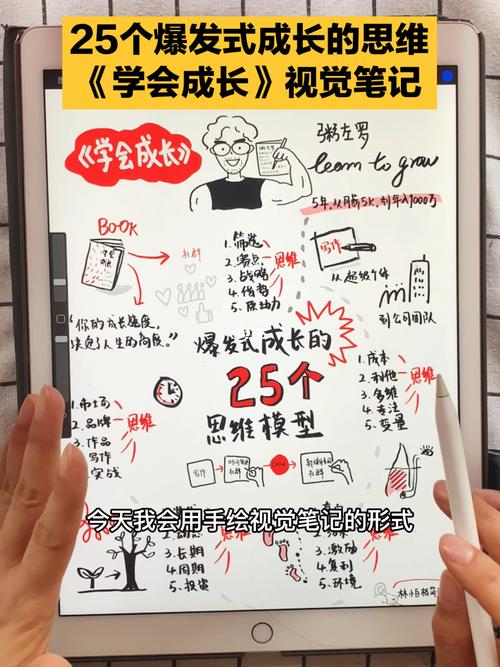 25个爆发式成长的思维
《学会成长》视觉笔记
《学会成长》
粥左罗
learn to grow
5年,从月薪5K,到年入1000万
BOOK
社群
1.筛选
2.
3.战略
4.
5.原动力
思维
写作
从超级个体
到公司团队
“你的成长速度,
决定了人生的高度。”
爆发式成长的
25个
思维模型
1.市场
2.品牌
3.作品
写作
实战
思维
1.成本
2.利他
3.多维
4.专注
5.变量
思维
写作
社群
今天我会用手绘视觉笔记的形式
3.长期
4.周期
5.投资
思维
3.激励
4.复利
5.环境
思维
林小白